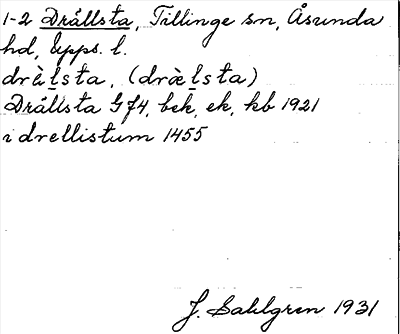 1-2 Drällsta, Tillinge sn, Åsunda
hd, Upps. l.
drὲḷsta, (dræ̀ḷsta)
Drällsta G J4, bek, ek, kb 1921
i drellistum 1455
J. Sahlgren 1931